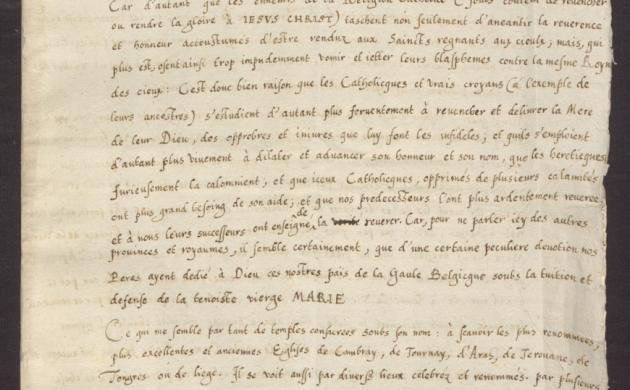 Car d'autant que les ennemis de la Religion Catholicque (sous couleur de revencher
ou rendre la gloire à IESUS CHRIST) taschent non seulement d'aneantir la reverence
et honneur accoustumés d'estre rendus aux Saincts regnants aux cieux; mais, qui
plus est, osent ainsi trop impudemment vomir et ietter leurs blasphemes contre la mesme Reyne
des cieux: C'est donc bien raison que les Catholicques et vrais croyans (à l'exemple de
leurs ancestres) s'estudient d'autant plus fervemment à revencher et delivrer la Mere
de leur Dieu, des opprobres et iniures que luy font les infideles; et quils s'emploient
d'autant plus vivement à dilater et advancer son honneur et son nom, que les hereticques
furieusement la calomnient; et que iceux Catholicques, opprimés de plusieurs calamités
ont plus grand besoing de son aide; et que nos predecesseurs l'ont plus ardentement reveree
et à nous leurs successeurs ont enseigné de la reverer. Car, pour ne parler icy des autres
provinces et royaumes, il semble certainement, que d'une certaine peculiere devotion nos
Peres ayent dedié à Dieu ces nostres païs de la Gaule Belgicque soubs la tuition et
defense de la vierge MARIE
Ce qui me semble par tant de temples consacrés soubs son nom: à scavoir les plus renommées,
plus excellentes et anciennes Eglises de Cambray, de Tournay, d'Aras, de Terouane, de
Tongres ou de liege. Il se voit aussi par divers lieux celebrez et renommés. par plusieurs